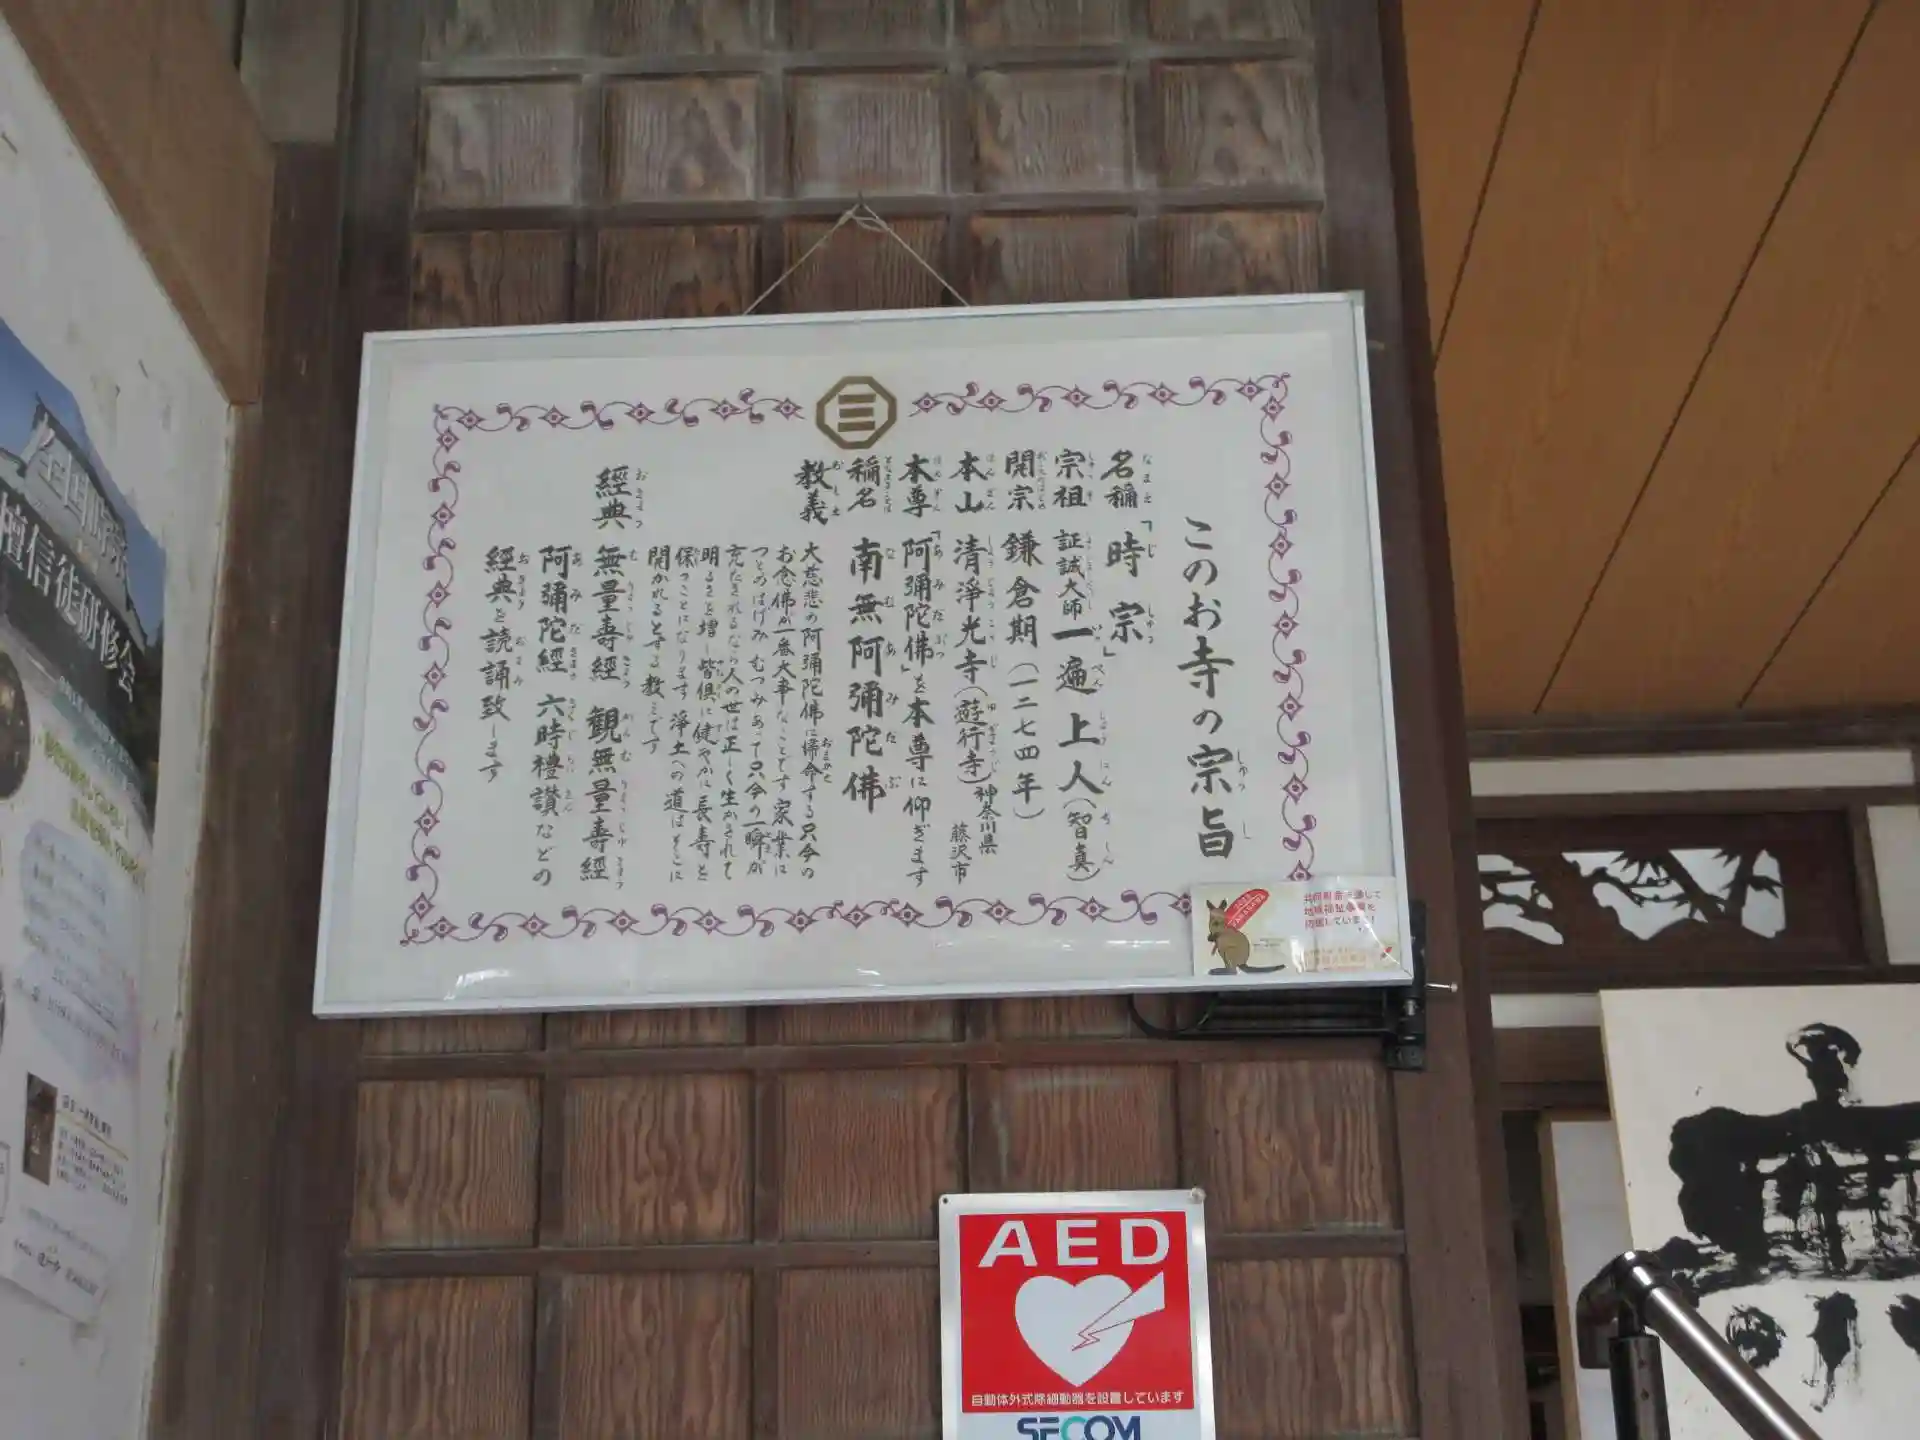 このお寺の宗旨
名稱 「時宗」
宗祖 証誠大師 一遍上人(智真)
開宗 鎌倉期(一二七四年)
本山 清淨光寺(遊行寺) 神奈川県 藤沢市
本尊 「阿彌陀佛」を本尊に仰ぎます
稱名 南無阿彌陀佛
教義 大慈悲の阿彌陀佛に帰命する只今の
お念佛が一番大事なことです 家業に
つとめはげみ むつみあって只今の一瞬が
充たされるなら人の世は正しく生かされて
明るさを増し 皆倶に健やかに長寿を
保つことになります 淨土への道はそこに
開かれるとする教えです
經典 無量壽經 觀無量壽經
阿彌陀經 六時禮讃などの
經典を読誦致します
共同募金を通じて
地域福祉事業を
応援しています!
AED
自動体外式除細動器を設置しています
SECOM
全国時宗
檀信徒研修会